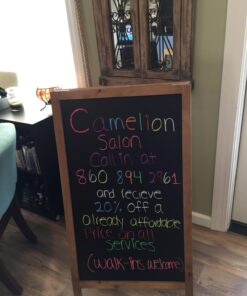 Camelion
Salon
Call in at
860 894 2961
and recieve
20% off a
already affordable
Price on all
services
(walk-ins welcome)